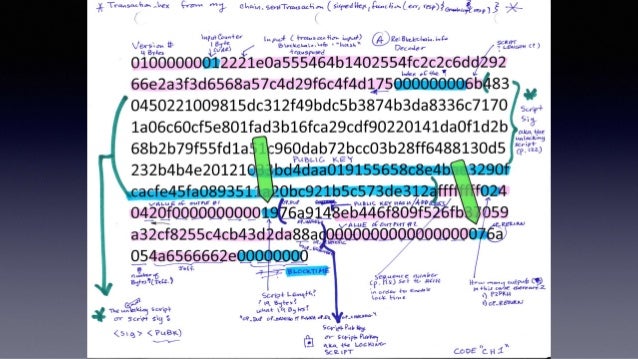 * Transaction_hex from my chain.sendTransaction (signedHex, function (err, resp) { resp) } *
Input Counter
1 Byte
Input (transaction input)
Blockchain.info - "hash"
transposed
(A) Re: Blockchain.info
Decoder
SCRIPT
LENGTH (?)
Version #
4 Bytes
01000000012221e0a555464b1402554fc2c2c6dd292
Index of the
66e2a3f3d6568a57c4d29f6c4f4d175000000006b483
0450221009815dc312f49bdc5b3874b3da8336c7170
Script
Sig
1a06c60cf5e801fad3b16fca29cdf90220141da0f1d2b
aka the
unlocking
script
(p.122)
68b2b79f55fd1a 1c960dab72bcc03b28ff6488130d5
PUBLIC KEY
232b4b4e20121 bd4daa019155658c8e4b 3290f
cacfe45fa0893511 20bc921b5c573de312affffffff024
VALUE OF OUTPUT #1
OP_DUP
PUBLIC KEY HASH/ADDRESS
0420f00000000001976a9148eb446f809f526fb 7059
VALUE OF OUTPUT #2
OP_RETURN
a32cf8255c4cb43d2da88ac0000000000000000076a
054a6566662e00000000
number of
Bytes (Jeff.)
Jeff.
BLOCKTIME
SEQUENCE number
(p.118) set to
in order to enable
lock time
How many outputs
in this case there are 2
1) P2PKH
2) OP_RETURN
* The unlocking script
or script sig
<Sig> <PubK>
Script Length?
19 Bytes?
what 19 Bytes?
Script Pub Key
or Script PubKey
aka the LOCKING
SCRIPT
CODE "CH1"